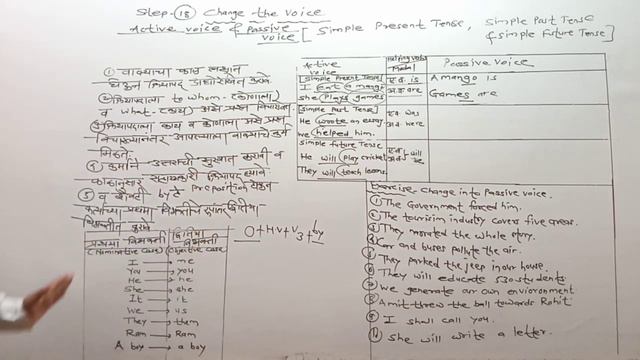 Step-18 Change the Voice
Active voice & Passive voice [Simple Present Tense, Simple Past Tense & simple Future Tense]
① वाक्याचा काळ
② क्रियापदाला to whom (कोणाला)
व what (काय) असे प्रश्न
③ क्रियापदाला काय व कोणाला असे प्रश्न
④ कर्माने उत्तराची सुरुवात करावी व
काळानुसार सहायकारी क्रियापद
⑤ व शेवटी by हे Preposition
O + HV + V3 + by
प्रथमा विभक्ती द्वितीया विभक्ती
(Nominative Case) (Objective Case)
I → me
You → you
He → he
She → she
It → it
We → us
They → them
Ram → Ram
A boy → a boy
Active voice Helping verbs Modal Passive voice
Simple Present Tense]
I eat a mango ए.व. is A mango is
She plays games अ.व. are Games are
Simple Past Tense]
He wrote an essay ए.व. was
We helped him. अ.व. were
Simple future Tense
He will play cricket ए.व. अ.व. will be
They will teach lesons.
Exercise- Change into Passive voice.
① The Government forced him.
② The tourisim industry covers five areas.
③ They narrated the whole story.
④ Car and buses pollute the air.
⑤ They parked the jeep in our house.
⑥ They will educate 530 students
⑦ We generate our own enviornment
⑧ Amit threw the ball towards Rohit
⑨ I shall call you.
⑩ She will write a letter.